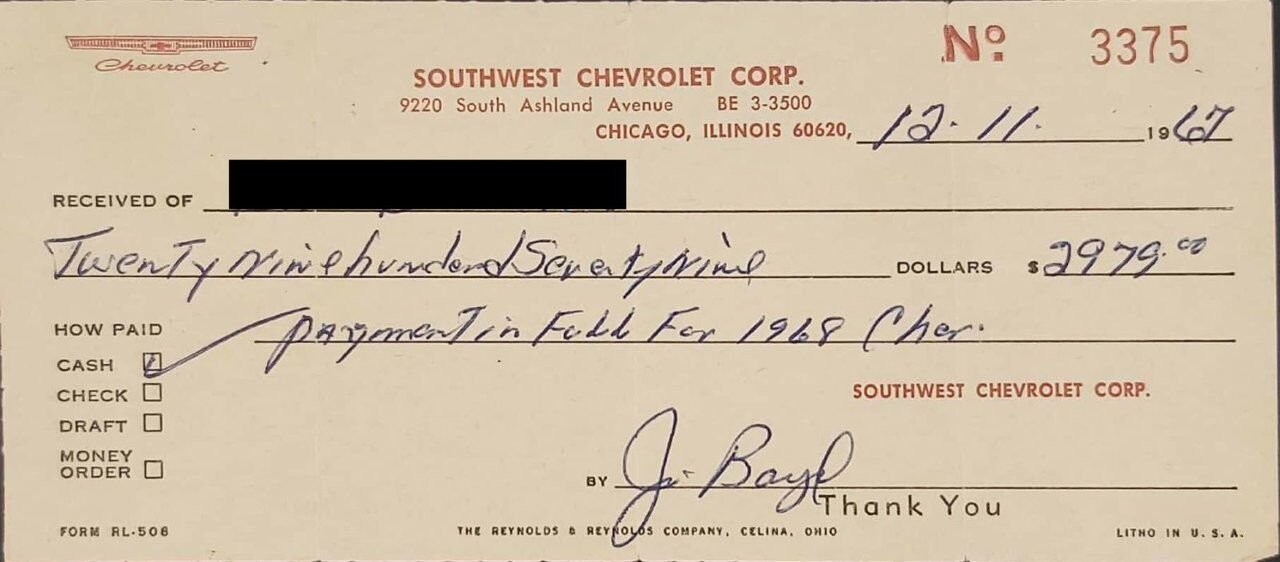 Chevrolet
Nº 3375
SOUTHWEST CHEVROLET CORP.
9220 South Ashland Avenue BE 3-3500
CHICAGO, ILLINOIS 60620, 12-11- 1967
RECEIVED OF
Twenty Nine hundered Seventy Nine DOLLARS $2979.00
HOW PAID
payment in Full For 1968 Chev.
CASH
CHECK
SOUTHWEST CHEVROLET CORP.
DRAFT
MONEY
ORDER
BY J. Boyd
Thank You
FORM RL-508
THE REYNOLDS & REYNOLDS COMPANY, CELINA, OHIO
LITHO IN U. S. A.